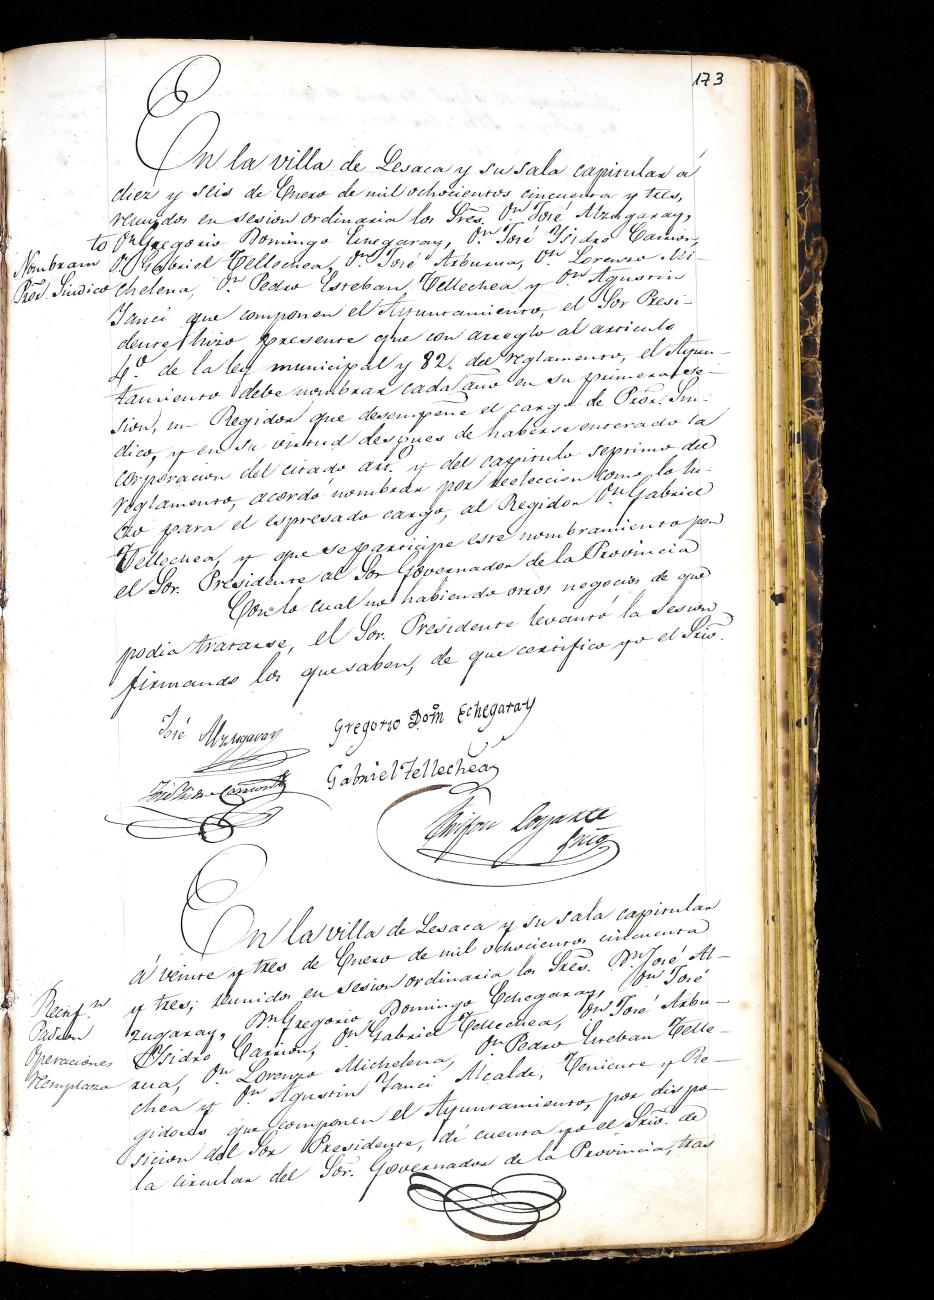 173
En la villa de Lesaca y su sala capitular á
diez y seis de Enero de mil ochocientos cincuenta y tres,
reunidos en sesion ordinaria los Sres. Dn. José Alzugaray,
Dn. Gregorio Domingo Echegaray, Dn. José Ysidro Carrion,
Dn. Gabriel Tellechea, Dn. José Arburua, Dn. Lorenzo Mi-
chelena, Dn. Pedro Esteban Tellechea y Dn. Agustin
Yanci que componen el Ayuntamiento, el Sor Presi-
dente hizo presente que con arreglo al articulo
4.º de la ley municipal y 82, del reglamento, el Ayun-
tamiento debe nombrar cada año en su primera se-
sion, un Regidor que desempeñe el cargo de Pror. Sin-
dico, y en su virtud despues de haberse enterado la
corporacion del citado art.º y del capitulo septimo del
reglamento, acordó nombrar por reeleccion como lo hi-
zo para el espresado cargo, al Regidor Dn. Gabriel
Tellechea, y que se participe este nombramiento por
el Sor. Presidente al Sor Governador de la Provincia
Con lo cual no habiendo otros negocios de que
podia tratarse, el Sor. Presidente levantó la sesion
firmando los que saben, de que certifico yo el Srio.
Nombramto
Pror. Sindico
José Alzugaray
Gregorio Domn Echegaray
José Ysidro Carrion
Gabriel Tellechea
Srio
En la villa de Lesaca y su sala capitular
á veinte y tres de Enero de mil ochocientos cincuenta
y tres, reunidos en sesion ordinaria los Sres. Dn. José Al-
zugaray, Dn. Gregorio Domingo Echegaray, Dn. José
Ysidro Carrion, Dn. Gabriel Tellechea, Dn. José Arbu-
rua, Dn. Lorenzo Michelena, Dn. Pedro Esteban Telle-
chea y Dn. Agustin Yanci Alcalde, Teniente y Re-
gidores que componen el Ayuntamiento, por dispo-
sicion del Sor Presidente, dí cuenta yo el Srio. de
la circular del Sor. Governador de la Provincia, tras
Rectif.n
Padron
Operaciones
remplazo